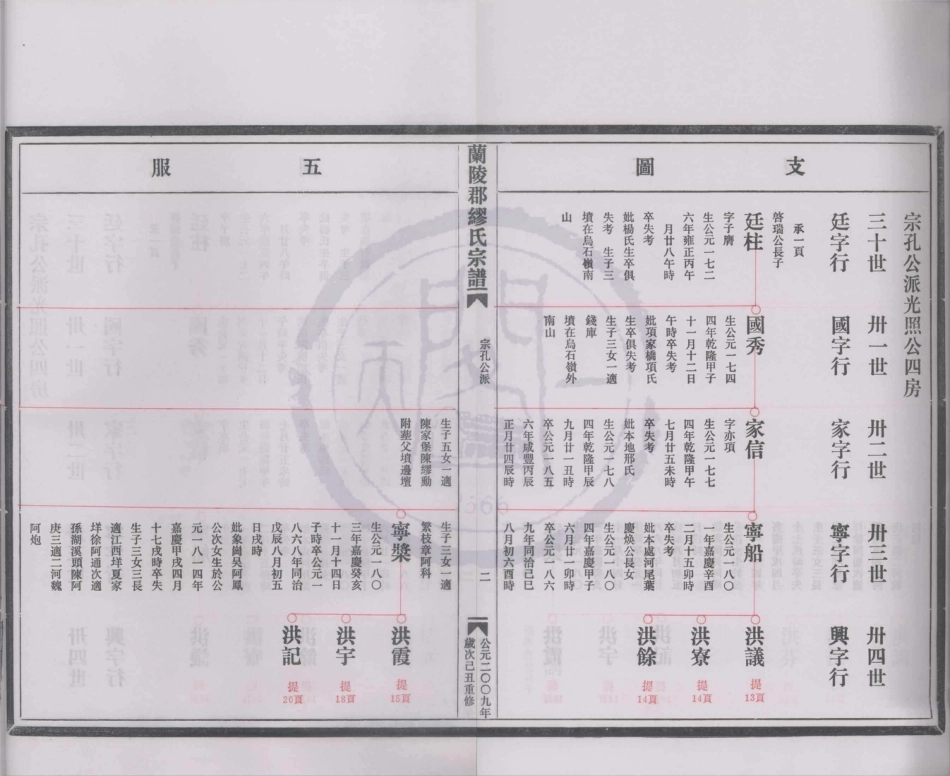 支
圖
宗孔公派光照公四房
三十世
廷字行
承一頁
啓瑞公長子
廷柱
字子膺
生公元一七二
六年雍正丙午
月廿八午時
卒失考
妣楊氏生卒俱
失考　生子三
墳在烏石嶺南
山
卅一世
國字行
國秀
生公元一七四
四年乾隆甲子
十一月十二日
午時卒失考
妣項家橋項氏
生卒俱失考
生子三女一適
錢庫
墳在烏石嶺外
南山
卅二世
家字行
家信
字亦項
生公元一七七
四年乾隆甲午
七月廿五未時
卒失考
妣本地邢氏
生公元一七八
四年乾隆甲辰
九月廿一丑時
卒公元一八五
六年咸豐丙辰
正月廿四辰時
卅三世
寧字行
寧船
生公元一八〇
一年嘉慶辛酉
二月十五卯時
卒失考
妣本處河尾葉
慶煥公長女
生公元一八〇
四年嘉慶甲子
六月廿一卯時
卒公元一八六
九年同治己巳
八月初六酉時
卅四世
興字行
洪議
提
13頁
洪寮
提
14頁
洪餘
提
14頁
蘭陵郡繆氏宗譜
宗孔公派
二
公元二〇〇九年
歲次己丑重修
五
服
生子五女一適
陳家堡陳繆勳
附塟父墳邊壇
生子三女一適
繁枝章阿科
寧槳
生公元一八〇
三年嘉慶癸亥
十一月十四日
子時卒公元一
八六八年同治
戊辰八月初五
日戌時
妣象崗吳阿鳳
公次女生於公
元一八一四年
嘉慶甲戌四月
十七戌時卒失
生子三女三長
適江西垟夏家
垟徐阿通次適
孫湖溪頭陳阿
庚三適二河魏
阿炮
洪霞
提
15頁
洪宇
提
18頁
洪記
提
20頁